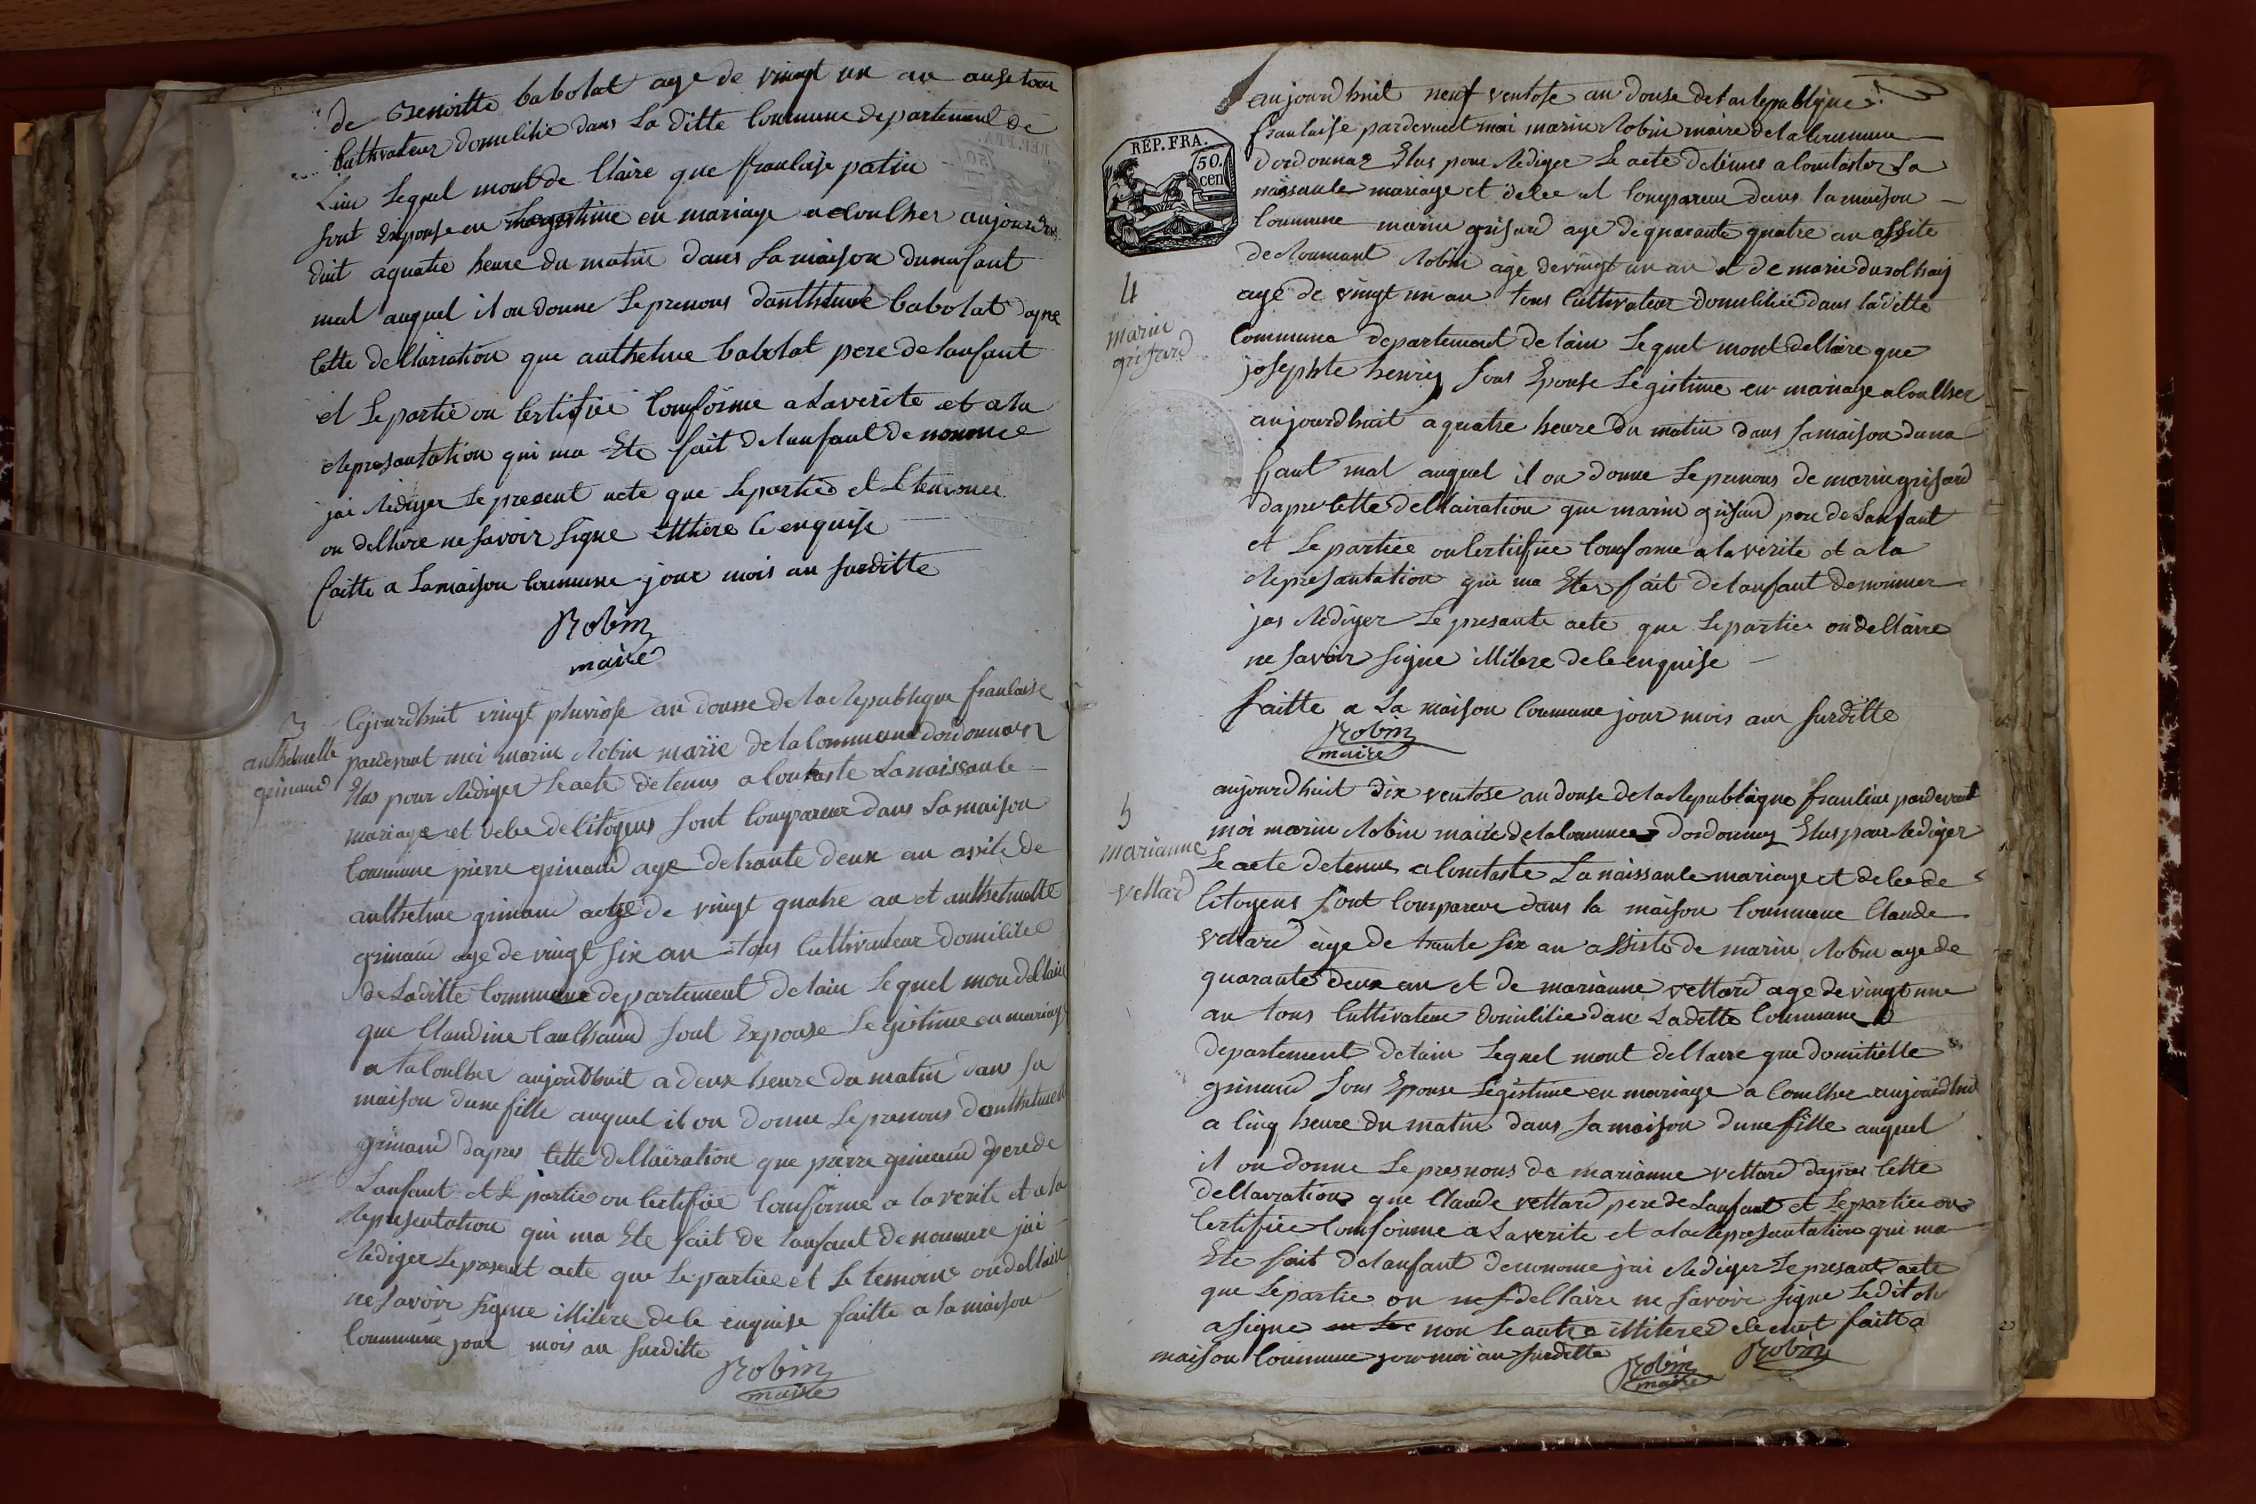 de Benoitte babolat age de vingt un an
Cultivateur domilitie dans La ditte Commune departement de
Lain Lequel mont de Claire que francoise patin
sont Exponse en Legestime en mariage a coulher aujour
duit a quatre heure du matin dans sa maison dunafant
mal auquel il on donne Le prenons danthelme babolat dapre
Cette declaration que anthelme babolat pere de lanfant
et Le partie on Certifie Comforme a La verite et a la
Represantation qui ma Ete fait de lanfant denomme
jai Rediger Le present acte que Le partie et Le temoien
on declare ne savoir signe illitere Ce enquise
faitte a La maison Commune jour mois an surditte
Robin
maire
3
anthelmette
grinand
Cejourdhuit vingt pluviose an dousse de La Republique francaise
pardevant moi marin Robin marie de la Commune dordonnaz
Elus pour Rediger Le acte detenus a Contaste La naissance
mariage et dece de Citoyens sont Compareur dans La maison
Commune pierre grinand age de trante deux an assite de
anthelme grinand age de vingt quatre an et anthelmette
grinand age de vingt six an tous Cultivateur domilitie
de La ditte Commune departement de lain Lequel mon delaire
que Claudine Caulhand sont Expouse Legistime en mariage
a La Coulher aujourdhuit a deux heure du matin dans sa
maison dune fille auquel il on donne Le prenons danthelmette
grinand dapres Cette declairation que pierre grinand pere de
Lanfant et Le partie on Certifie Comforme a la verite et a la
Representation qui ma Ete fait de lanfant denommere jai
Rediger Le present acte que Le partie et Le temoins on declaire
ne savoir signe illitere de Ce enquise faitte a La maison
Commune jour mois an surditte
Robin
maire
aujourdhuit neuf ventose an douse de la Republique
francaise pardevnet moi marin Robin maire de la Commune
dordonnaz Elus pour Rediger Le acte detenus a Contaster La
naissance mariage et dece et Compareu dans la maison
Commune marin grisard age de quarante quatre an assite
de Roumant Robin age de vingt un an et de marie
age de vingt un an tous Cultivateur domilitie dans la ditte
Commune departement de lain Lequel mont declaire que
josephte henry sous Epouse Legistime en mariage a Coulher
aujourdhuit a quatre heure du matin dans sa maison duna
fant mal auquel il on donne Le prenons de marin grisard
dapre Cette declairation que marin grisard pere de Lanfant
et Le partiee on Certifiee Comforme a la verite et a la
Represantation qui ma Eter fait de lanfant denommer
jas Rediger Le presante acte que Le partie on declaire
ne savoir signe illitere de Ce enquise
faitte a La maison Commune jour mois an surditte
Robin
maire
RÉP. FRA.
50.
cen
4
marin
grisard
5
marianne
vettard
aujourdhuit dix ventose an douse de la Republique francaise pardevant
moi marin Robin maire de la Commune dordonnaz Elus pour Rediger
Le acte detenue a Contaste La naissance mariage et dece de
Citoyens sont Compareue dans la maison Commune Claude
vettard age de trante six an assiste de marin Robin age de
quarante deux an et de marianne vettard age de vingt une
an tous Cultivateur domilitie dans La ditte Commune
departement de lain Lequel mont declaire que domitielle
grinand sous Epouse Legistime en mariage a Coulher aujourdhuit
a Cinq heure du matin dans sa maison dune fille auquel
il on donne Le presnous de marianne vettard dapres Cette
declairation que Claude vettard pere de Lanfant et Le partie on
Certifiee Comforme a La verite et a la Represantation qui ma
Ete fait de lanfant denomme jai Rediger Le presant acte
que Le partie on declaire ne savoir signe Ledit
a signe non Le autre illitered faitt a
maison Commune jour moi an surditte
Robin
maire
Robin